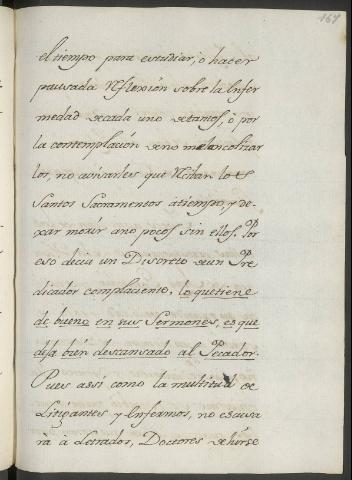 167
el tiempo para estudiar, o hacer
pausada Reflexión sobre la Enfer
medad de cada uno de tantos, ò por
la contemplación de no melancolizar
los, no avisarles que Reciban los
Santos Sacramentos a tiempo, y de-
xar morir a no pocos sin ellos. Por
eso decia un Discreto de un Pre
dicador complaciente, lo que tiene
de bueno en sus Sermones, es que
deja bien descansado al Pecador.
Pues assi como la multitud de
Litigantes y Enfermos, no escusa
rà à Letrados, Doctores de hirse